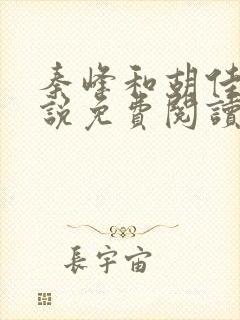 秦峰和胡佳
說免費閱讀
長宇宙